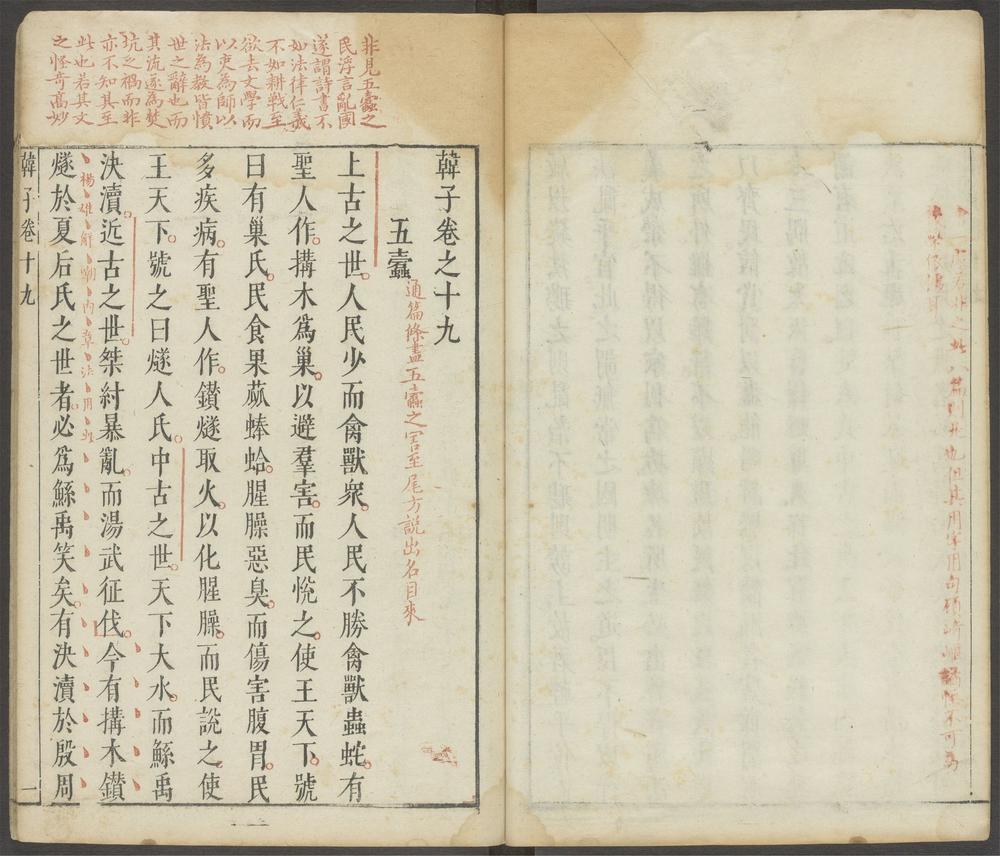 非見五蠹之
民浮言亂國
遂謂詩書不
如法律仁義
不如耕戰至
欲去文學而
以吏為師以
法為教皆憤
世之辭也而
其流遂為焚
坑之禍而非
亦不知其至
此也若其文
之怪奇高妙
韓子卷之十九
五蠹
通篇條盡五蠹之害至尾方說出名目來
上古之世人民少而禽獸衆人民不勝禽獸蟲蛇有
聖人作搆木爲巢以避羣害而民悅之使王天下號
曰有巢氏民食果蓏蜯蛤腥臊惡臭而傷害腹胃民
多疾病有聖人作鑚燧取火以化腥臊而民說之使
王天下號之曰燧人氏中古之世天下大水而鯀禹
決瀆近古之世桀紂暴亂而湯武征伐今有搆木鑚
楊雄解嘲內章法用此
燧於夏后氏之世者必爲鯀禹笑矣有決瀆於殷周
韓子卷十九
一